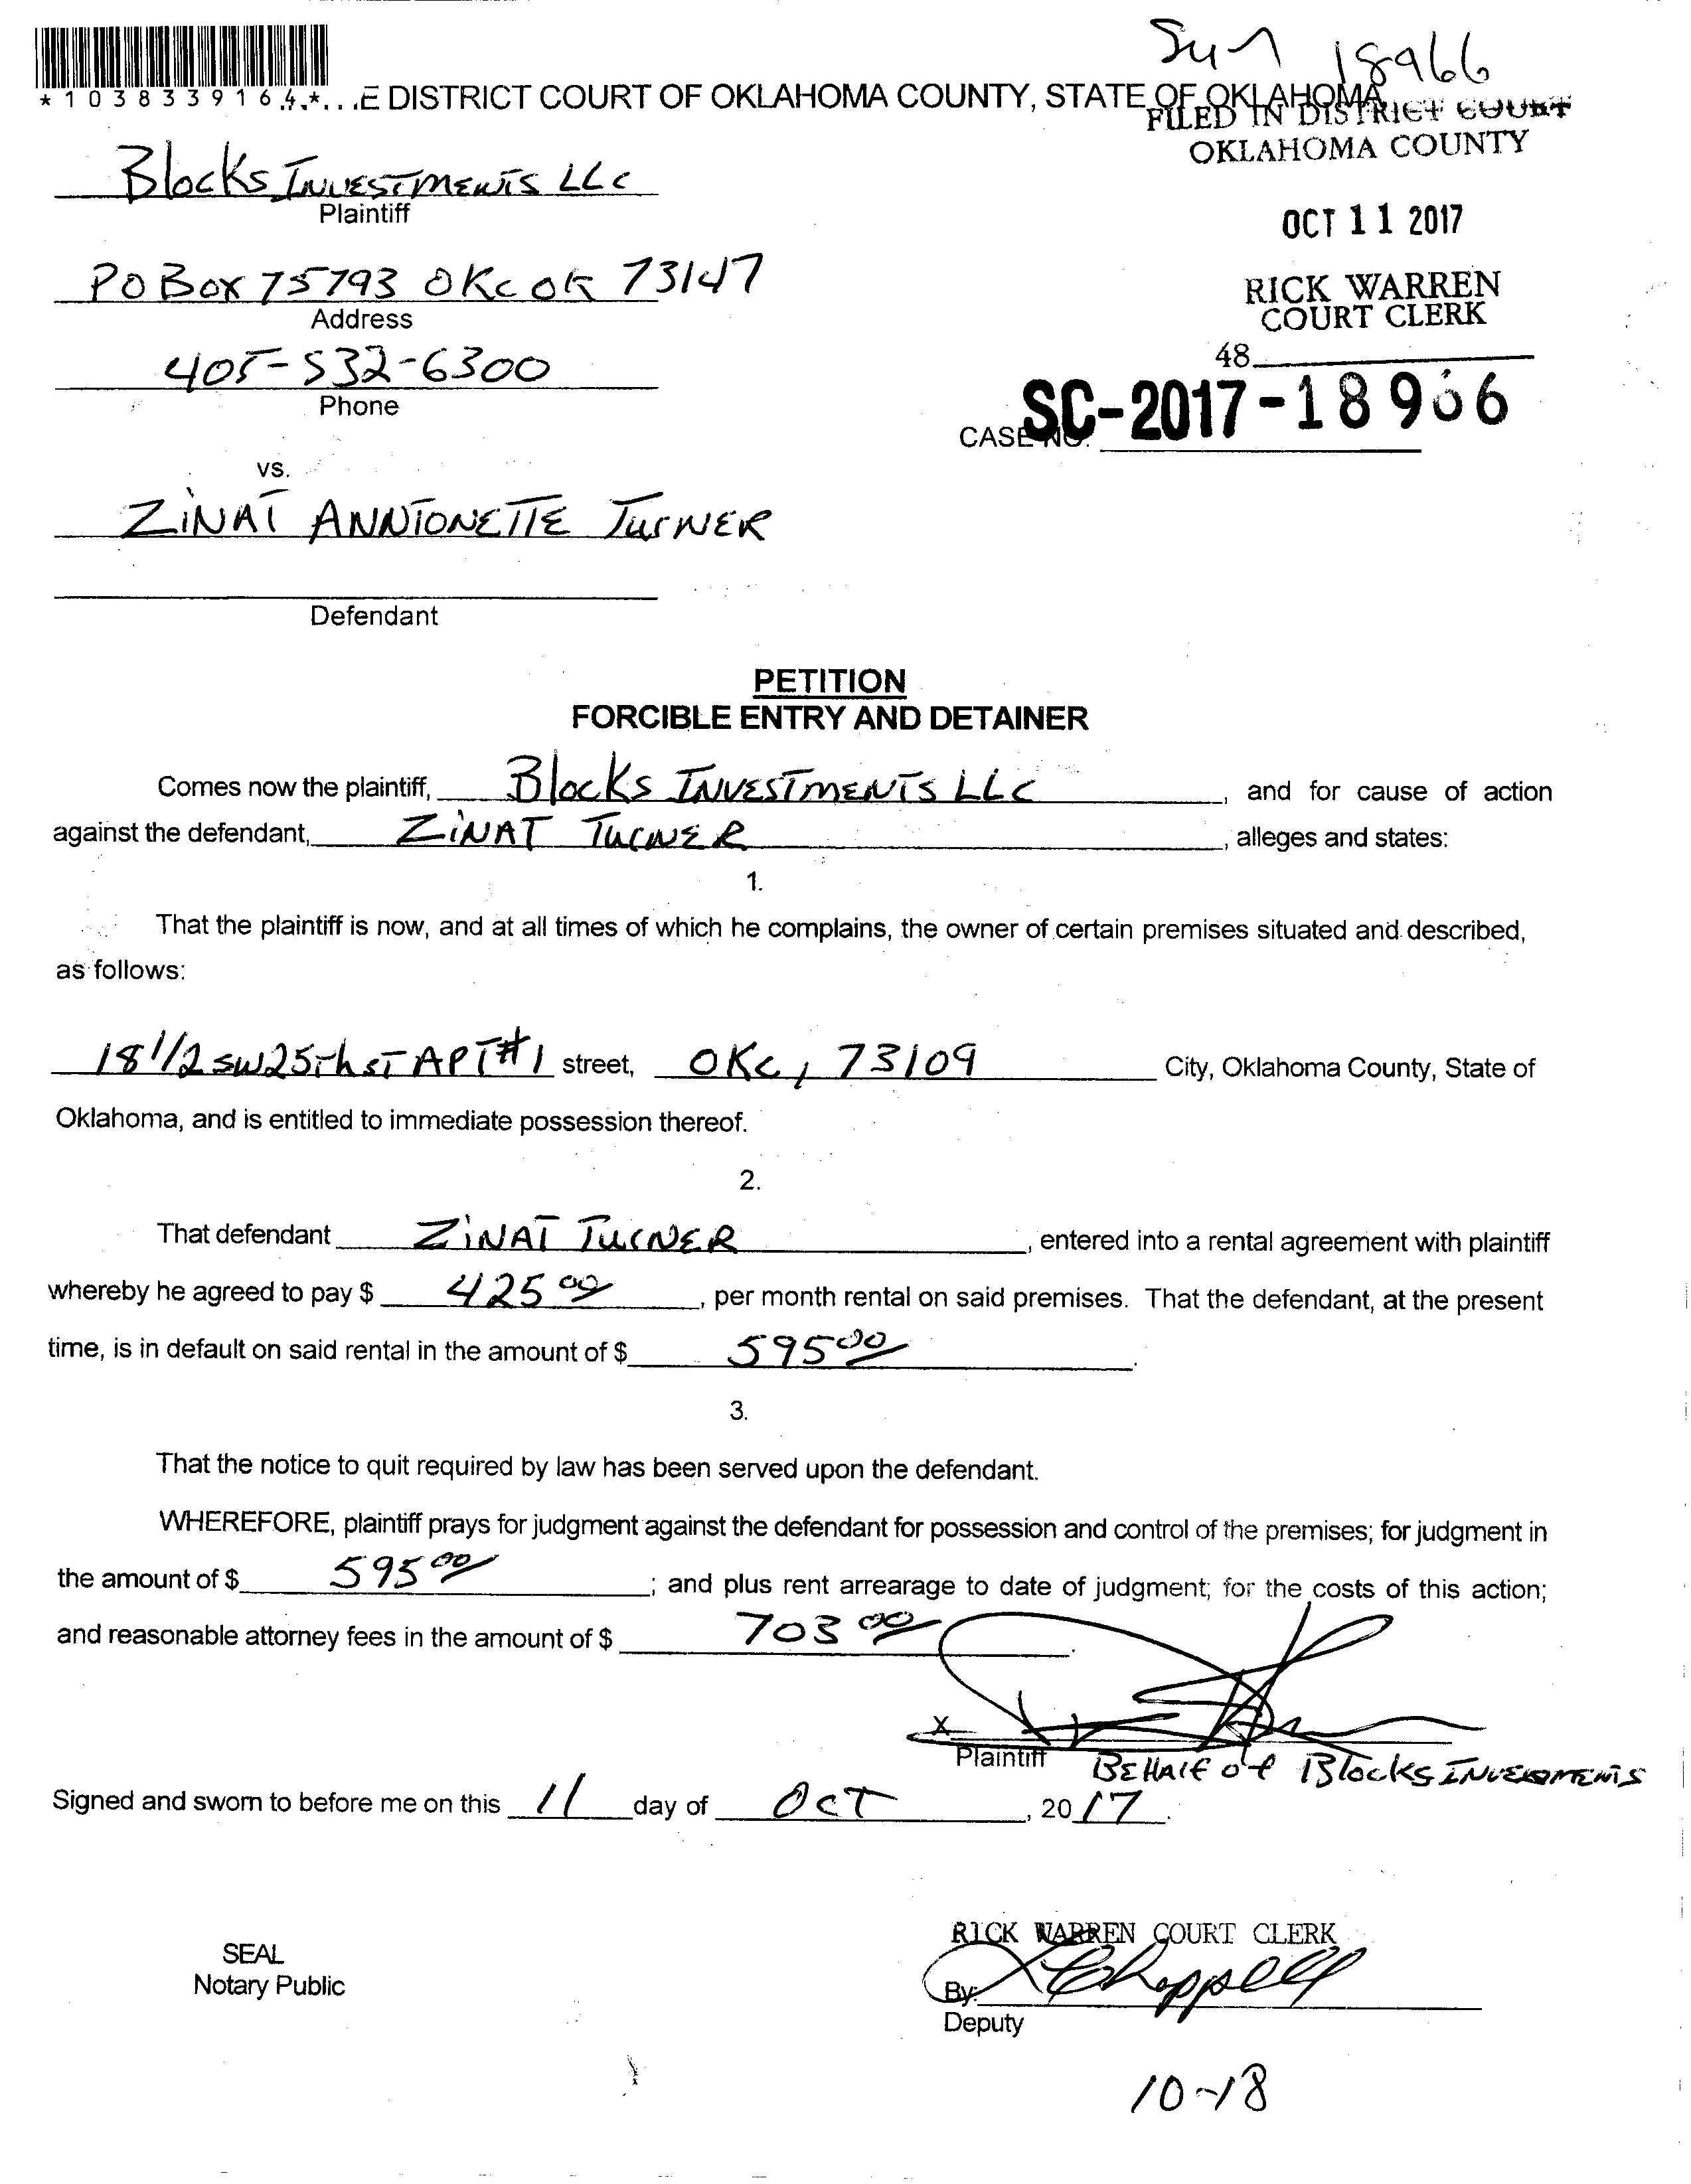 18966
*1038339164*...E DISTRICT COURT OF OKLAHOMA COUNTY, STATE OF OKLAHOMA
FILED IN DISTRICT COURT
OKLAHOMA COUNTY
Blocks INVESTMENTS LLC
Plaintiff
OCT 11 2017
PO Box 75793 OKC OK 73147
Address
RICK WARREN
COURT CLERK
405-532-6300
Phone
48
CASE NO. SC-2017-18966
vs.
ZINAT ANNTIONETTE TurNER
Defendant
PETITION
FORCIBLE ENTRY AND DETAINER
Comes now the plaintiff, Blocks INVESTMENTS LLC, and for cause of action
against the defendant, ZINAT TurNER, alleges and states:
1.
That the plaintiff is now, and at all times of which he complains, the owner of certain premises situated and described,
as follows:
18 1/2 SW 25th ST APT #1 street, OKC, 73109 City, Oklahoma County, State of
Oklahoma, and is entitled to immediate possession thereof.
2.
That defendant ZINAT TurNER, entered into a rental agreement with plaintiff
whereby he agreed to pay $ 425 00, per month rental on said premises. That the defendant, at the present
time, is in default on said rental in the amount of $ 595 00.
3.
That the notice to quit required by law has been served upon the defendant.
WHEREFORE, plaintiff prays for judgment against the defendant for possession and control of the premises; for judgment in
the amount of $ 595 00; and plus rent arrearage to date of judgment; for the costs of this action;
and reasonable attorney fees in the amount of $ 703 00.
X
Plaintiff BEHAlf of Blocks INVESTMENTS
Signed and sworn to before me on this 11 day of OCT, 2017.
RICK WARREN COURT CLERK
SEAL
Notary Public
By: Chappell
Deputy
10-18